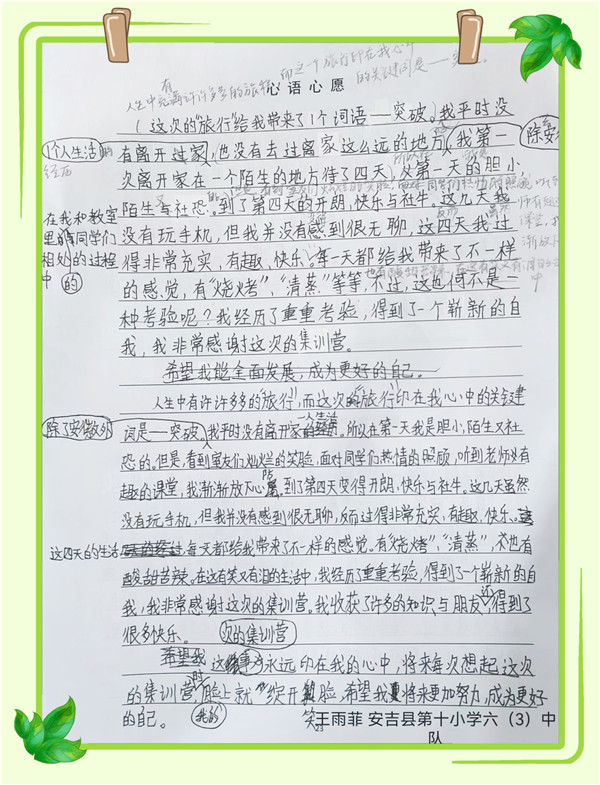 有
而这个旅行印在我心中
人生中充满许许多多的旅程
的关键词是——突破。
心语心愿
(这次的“旅行”给我带来了1个词语——突破。我平时没
个人生活的
经历
有离开过家,也没有去过离家这么远的地方,我第一
除安
次离开家在一个陌生的地方待了四天,从第一天的胆小
陌生与社恐。到了第四天的开朗、快乐与社牛。这几天我
在我和教室
里的同学们
相处的过程
中的
没有玩手机,但我并没有感到很无聊,这四天我过
得非常充实,有趣,快乐。每一天都给我带来了不一样
的感觉,有“烧烤”、“清蒸”等等,不过,这也何不是一
种考验呢?我经历了重重考验,得到了一个崭新的自
我,我非常感谢这次的集训营。
希望我能全面发展,成为更好的自己。
人生中有许许多多的“旅行”,而这次的“旅行”印在我心中的关键
除了安微外
词是——突破。我平时没有离开家个人生活。所以在第一天我是胆小,陌生又社
恐的。但是,看到室友们灿烂的笑脸,面对同学们热情的照顾,听到老师必有
趣的课堂,我渐渐放下心防。到了第四天变得开朗、快乐与社牛。这几天虽然
没有玩手机,但我并没有感到很无聊,反而过得非常充实,有趣,快乐。
这四天的生活每天都给我带来了不一样的感觉。有“烧烤”、“清蒸”,也有
酸甜苦辣。在这有笑又有泪的生活中,我经历了重重考验,得到了一个崭新的自
我,我非常感谢这次的集训营。我收获了许多的知识与朋友,还得到了
很多快乐。
次的集训营
希望我这事永远印在我的心中,将来每次想起这次
的集训营时,我的脸上就绽开笑脸。希望我将来更加努力,成为更好
的自己。
王雨菲 安吉县第十小学六(3)中
队